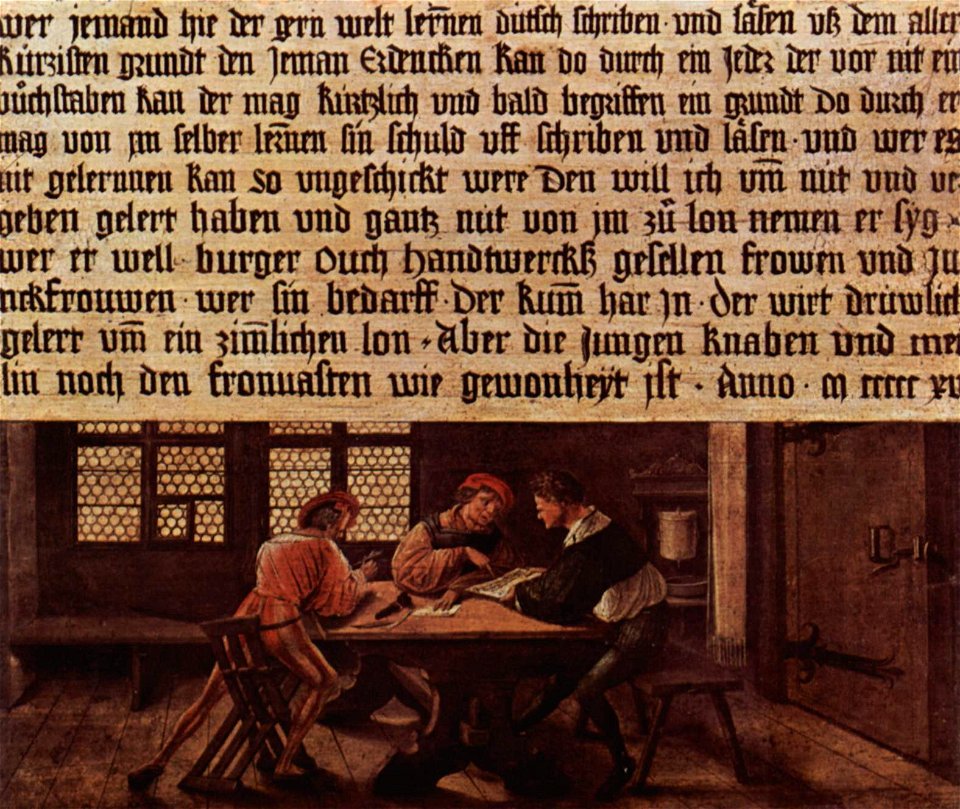 wer jemand hie der gern welt lernnen dütsch schriben · vnd läsen vß dem aller
kürzisten grundt den jeman Erdencken kan do durch ein jeder der vor nit ein
bůchstaben kan der mag kürtzlich vnd bald begriffen ein grundt do durch er
mag von jm selber lernnen sin schuld vff schriben vnd läsen · vnd wer es
nit gelernnen kan so vngeschickt were Den will ich vm̄ nüt vnd ver
geben gelert haben vnd gantz nüt von jm zů lon nemen er syg ·
wer er well · burger ouch handtwerckß gesellen frowen vnd ju
nckfrouwen · wer sin bedarff · der kum̄ har jn · der wirt drüwlich
gelert vm̄ ein zim̄lichen lon · Aber die jungen knaben vnd mei
lin noch den fronuasten wie gewonheyt ist · Anno · m ccccc xv